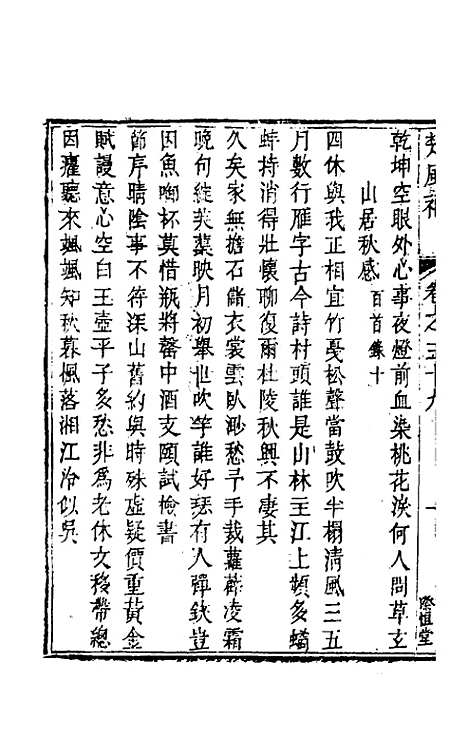 楚風補 卷之三十九 際恒堂
乾坤空眼外心事夜燈前血染桃花淚何人問草玄
山居秋感 百首錄十
四休與我正相宜竹憂松聲當鼓吹半榻清風三五
月數行雁字古今詩村頭誰是山林主江上頻多蟠
蚌持消得壯懷聊復爾杜陵秋興不凄其
久矣家無擔石儲衣裳雲臥渺愁予手裁蘿薜凌霜
晚句從芙蕖映月初舉世吹竽誰好瑟有人彈鋏豈
因魚啣杯莫惜瓶將罄中酒支頤試檢書
節序晴陰事不符深山舊約與時殊虛疑價重黃金
賦謾意心空白玉壺平子多愁非爲老休文移帶總
因癯聽來颯颯知秋暮楓落湘江冷似吳